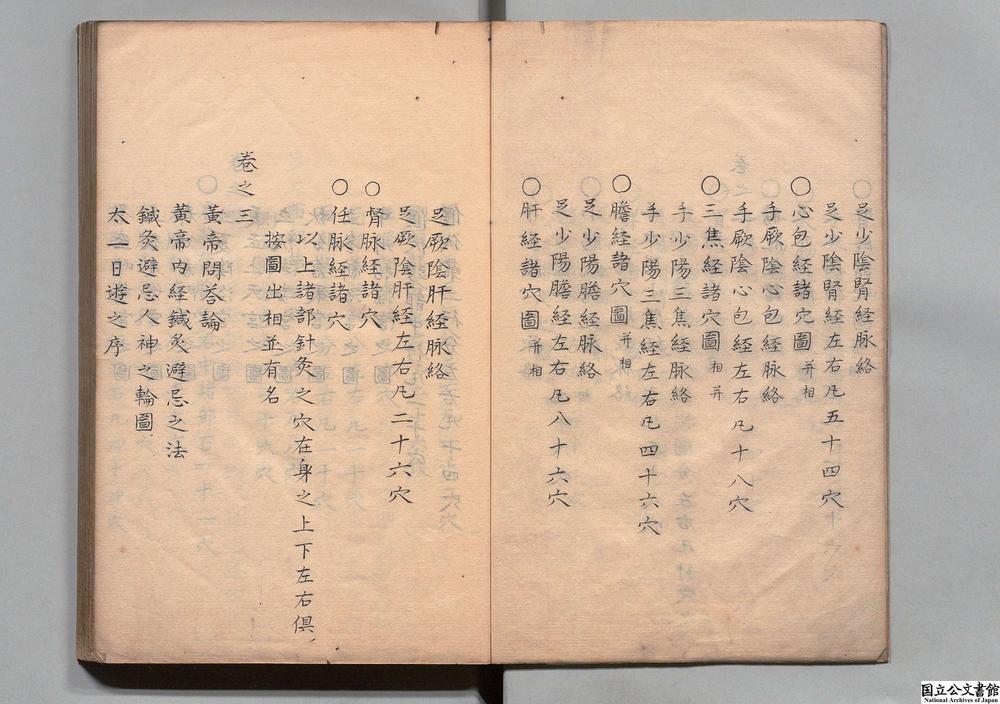 足少陰腎経脉絡
足少陰腎経左右凡五十四穴
○心包経諸穴圖并相
手厥陰心包経脉絡
手厥陰心包経左右凡十八穴
○三焦経諸穴圖相并
手少陽三焦経脉絡
手少陽三焦経左右凡四十六穴
○膽経諸穴圖并相
足少陽膽経脉絡
足少陽膽経左右凡八十六穴
○肝経諸穴圖并相
足厥陰肝経脉絡
足厥陰肝経左右凡二十六穴
○督脉経諸穴
○任脉経諸穴
以上諸部針灸之穴在身之上下左右俱
按圖出相並有名
卷之三
黃帝問荅論
黃帝内経鍼灸避忌之法
鍼灸避忌人神之輪圖
太一日遊之序
国立公文書館
National Archives of Japan